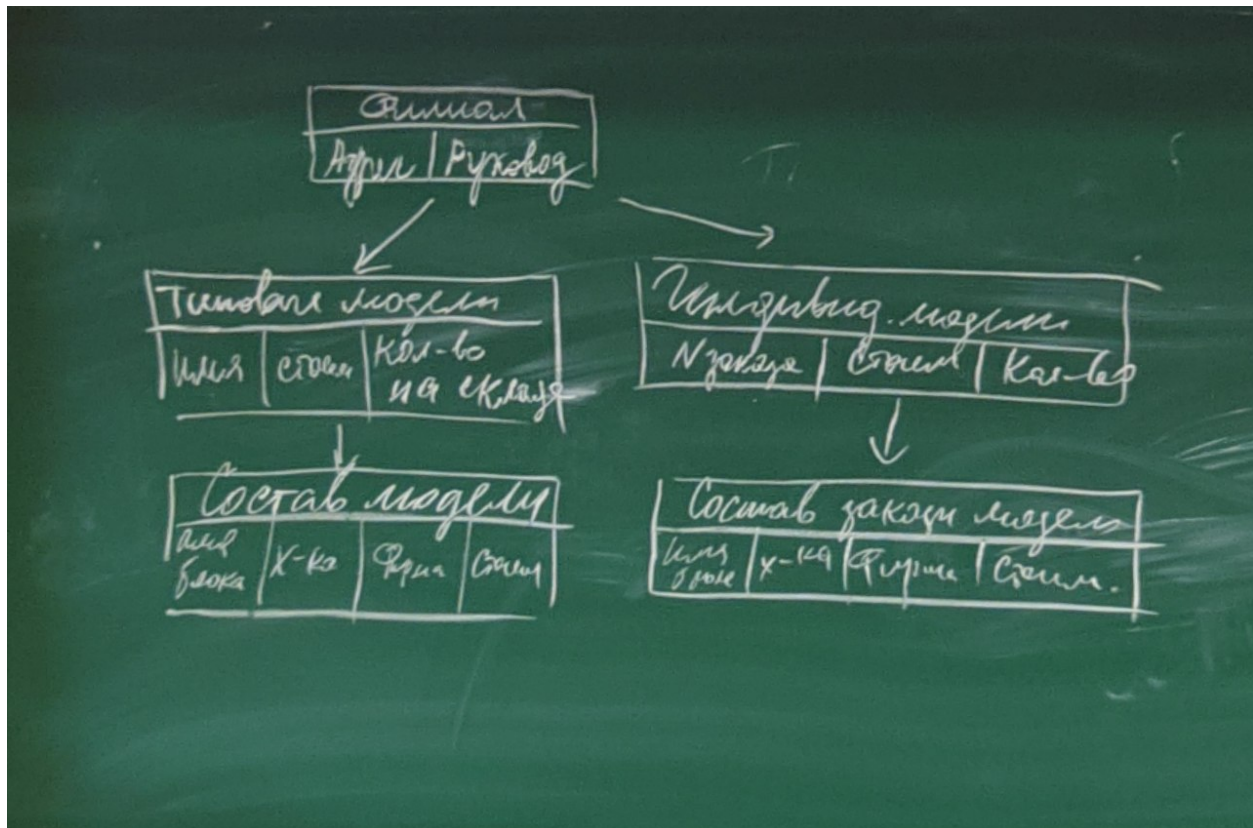 Филиал
Адрес Руковод
Типовые модели
имя стоим кол-во
на складе
Индивид. модели
N заказа Стоим Кол-во
Состав модели
имя
блока х-ка Фирма Стоим
Состав заказн модели
имя
блока х-ка Фирма Стоим.